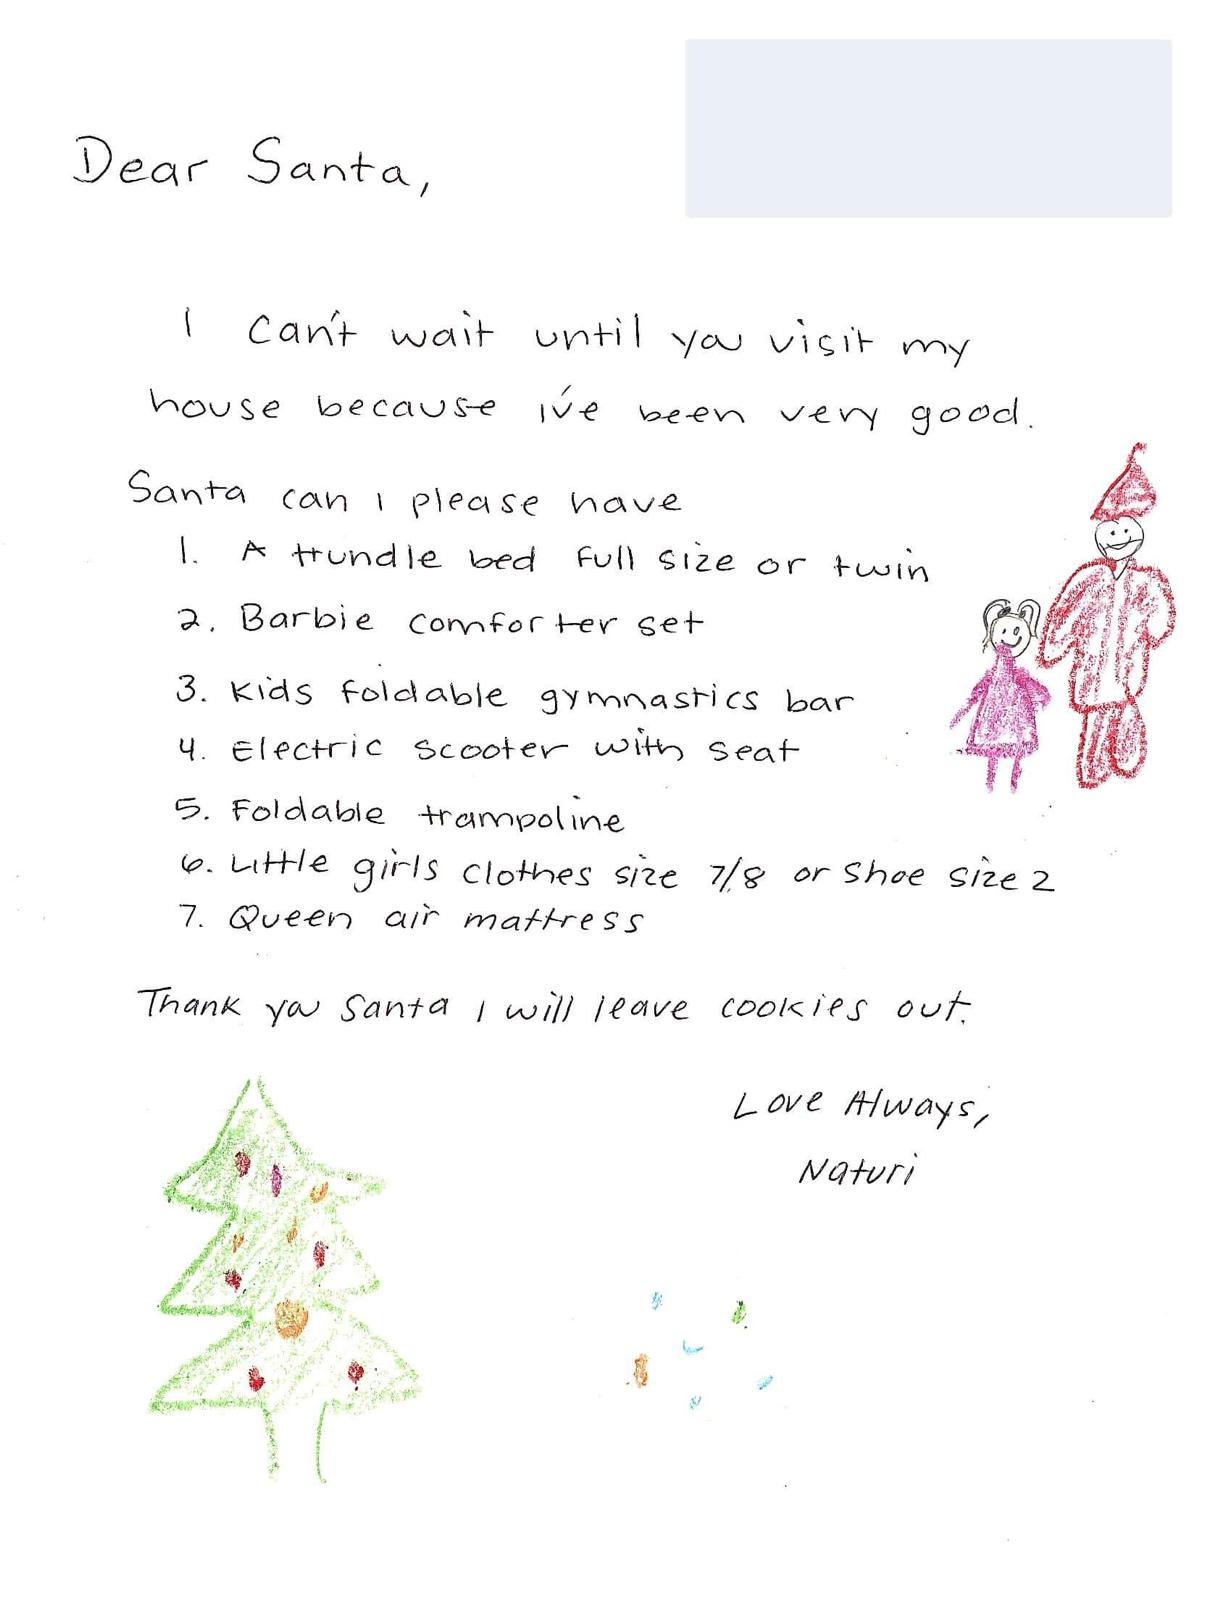 Dear Santa,
I can't wait until you visit my
house because i've been very good.
Santa can I please have
1. A trundle bed full size or twin
2. Barbie comforter set
3. Kids foldable gymnastics bar
4. Electric scooter with seat
5. Foldable trampoline
6. Little girls clothes size 7/8 or shoe size 2
7. Queen air mattress
Thank you Santa I will leave cookies out.
Love Always,
Naturi